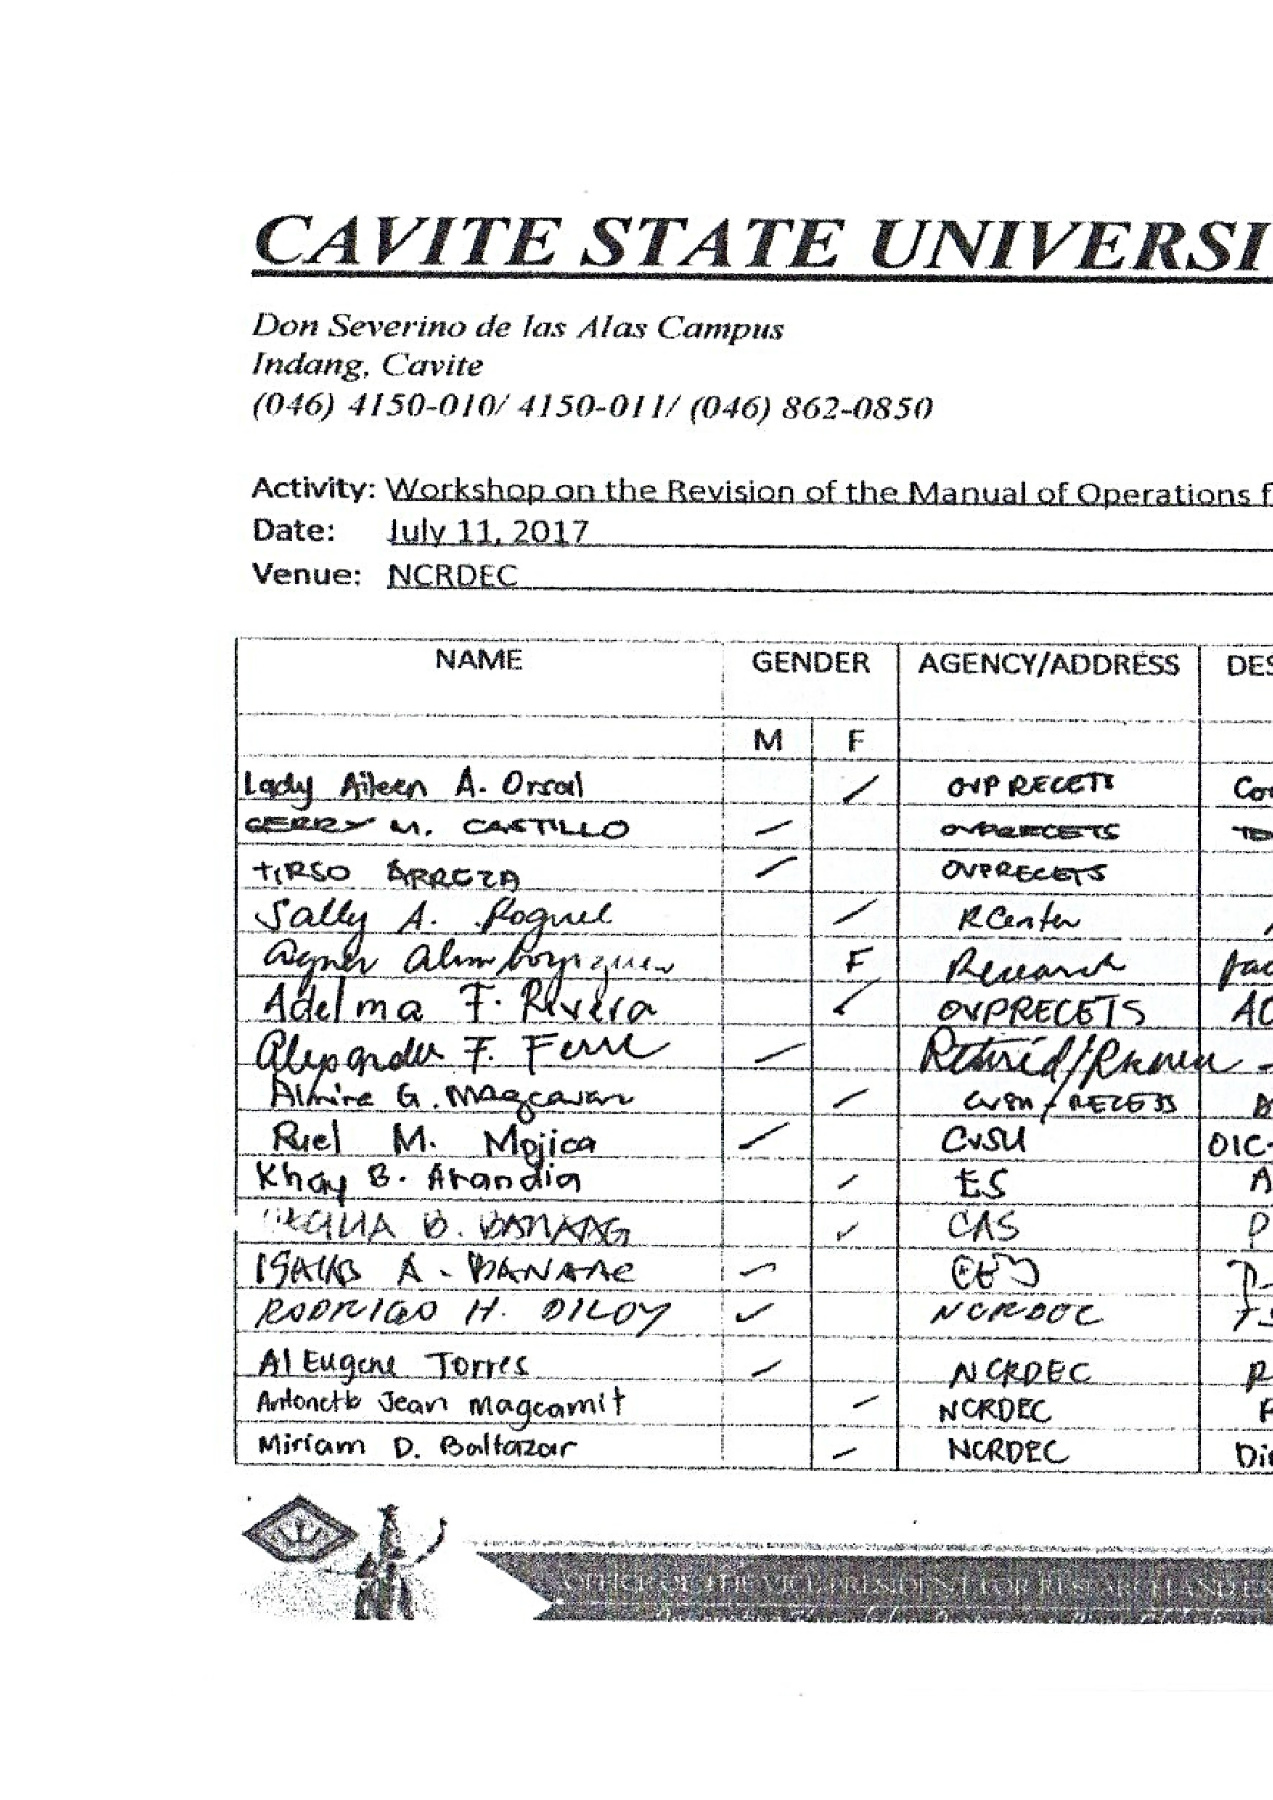 CAVITE STATE UNIVERSI
Don Severino de las Alas Campus
Indang, Cavite
(046) 4150-010/ 4150-011/ (046) 862-0850
Activity: Workshop on the Revision of the Manual of Operations f
Date: July 11, 2017
Venue: NCRDEC
NAME GENDER AGENCY/ADDRESS DES
M F
Lady Aileen A. Orsal OVPRECETS Co
GERRY M. CASTILLO OVPRECETS
TIRSO ARREZA OVPRECETS
Sally A. Roguel R Center
Agnes Research fac
Adelma F. Rivera OVPRECETS AC
Alexander F. Ferre Retired/
Almira G. Magcawas CvSU /
Ruel M. Mojica CvSU OIC-
Khay B. Arandia ES A
B. BANAAG CAS P
A. BANAAG
RODRIGO H. DILOY NCRDEC
Al Eugene Torres NCRDEC R
Antonette Jean Magcamit NCRDEC
Miriam D. Baltazar NCRDEC Di
OFFICE OF THE VICE PRESIDENT FOR RESEARCH AND E